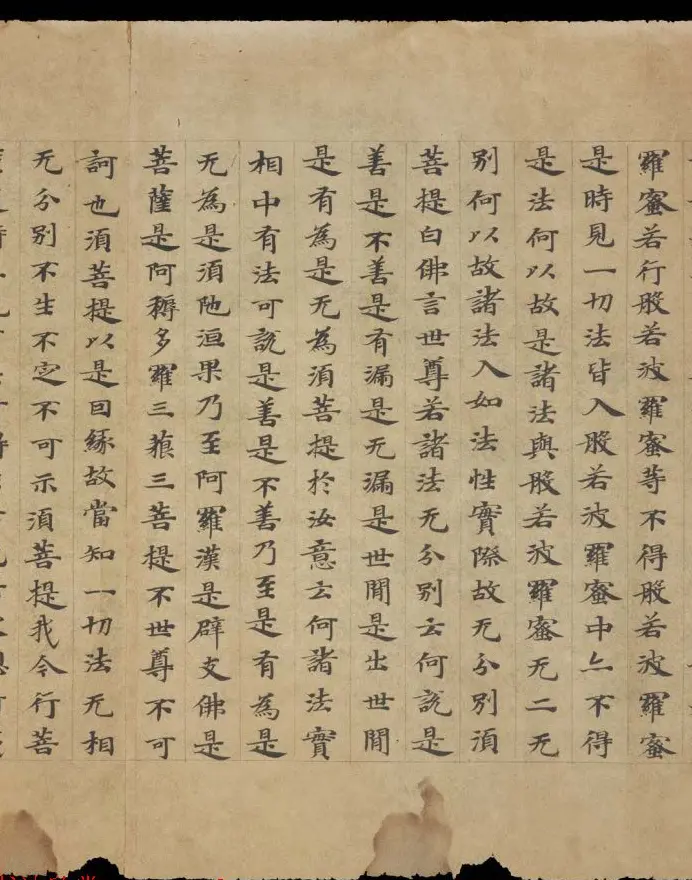 羅蜜若行般若波羅蜜等不得般若波羅蜜
是時見一切法皆入般若波羅蜜中亦不得
是法何以故是諸法與般若波羅蜜无二无
別何以故諸法入如法性實際故无分別須
菩提白佛言世尊若諸法无分別云何說是
善是不善是有漏是无漏是世間是出世間
是有為是无為須菩提於汝意云何諸法實
相中有法可說是善是不善乃至是有為是
无為是須陁洹果乃至阿羅漢是辟支佛是
菩薩是阿耨多羅三藐三菩提不世尊不可
訶也須菩提以是因緣故當知一切法无相
无分別不生不定不可示須菩提我今行菩